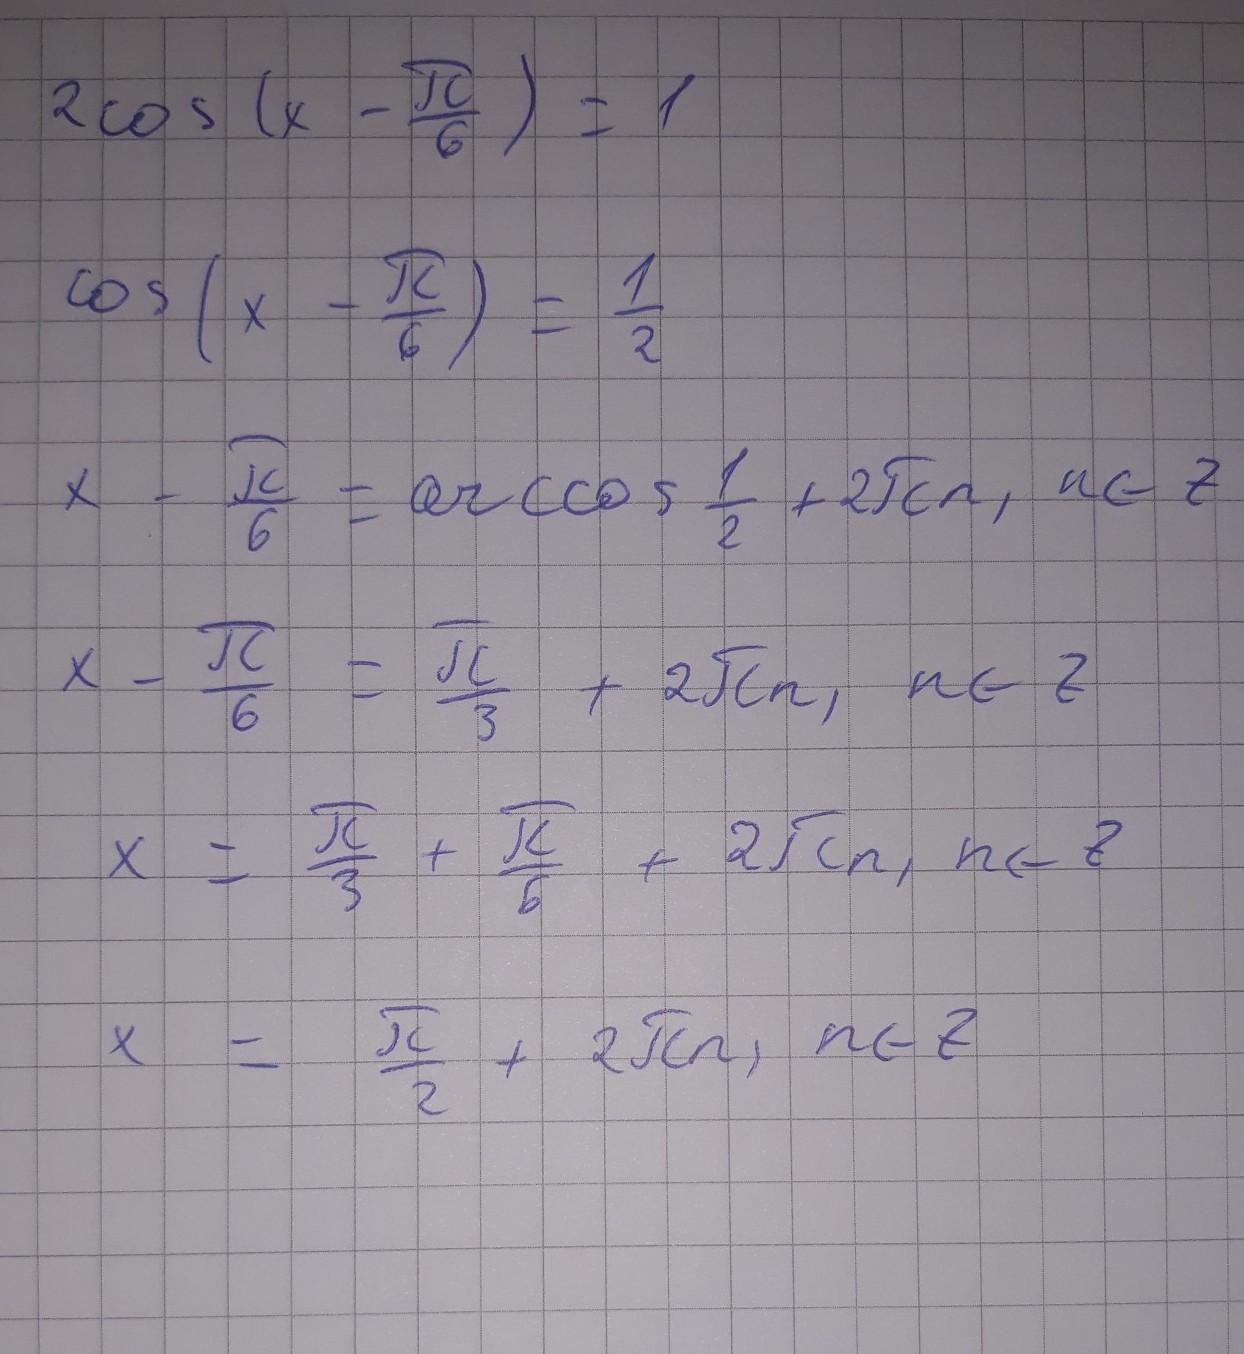 2cos(x - π/6) = 1
cos(x - π/6) = 1/2
x - π/6 = arccos 1/2 + 2πn, n ∈ Z
x - π/6 = π/3 + 2πn, n ∈ Z
x = π/3 + π/6 + 2πn, n ∈ Z
x = π/2 + 2πn, n ∈ Z